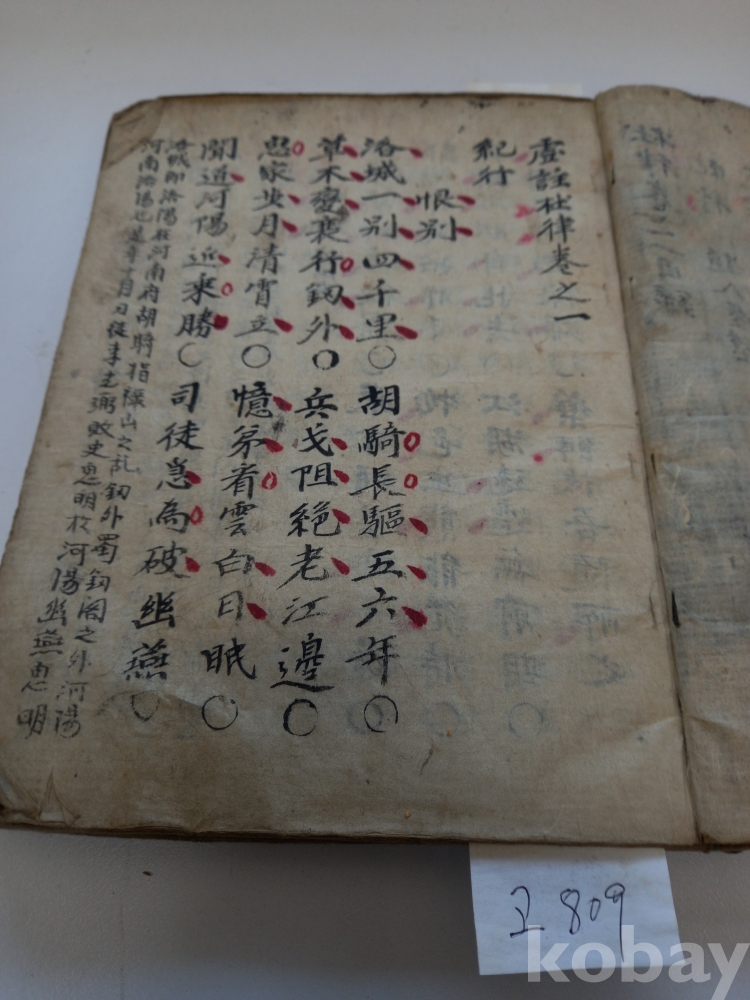 虞註杜律卷之一
紀行
恨別
洛城一別四千里○胡騎長驅五六年○
草木變衰行釰外○兵戈阻絕老江邊○
思家步月清宵立○憶弟看雲白日眠○
聞道河陽近乘勝○司徒急為破幽燕○
洛城即洛陽在河南府胡騎指祿山之乱釰外蜀釰閣之外河陽
河南洛陽也是年十月李光弼敗史思明於河陽幽燕思明
고809
kobay